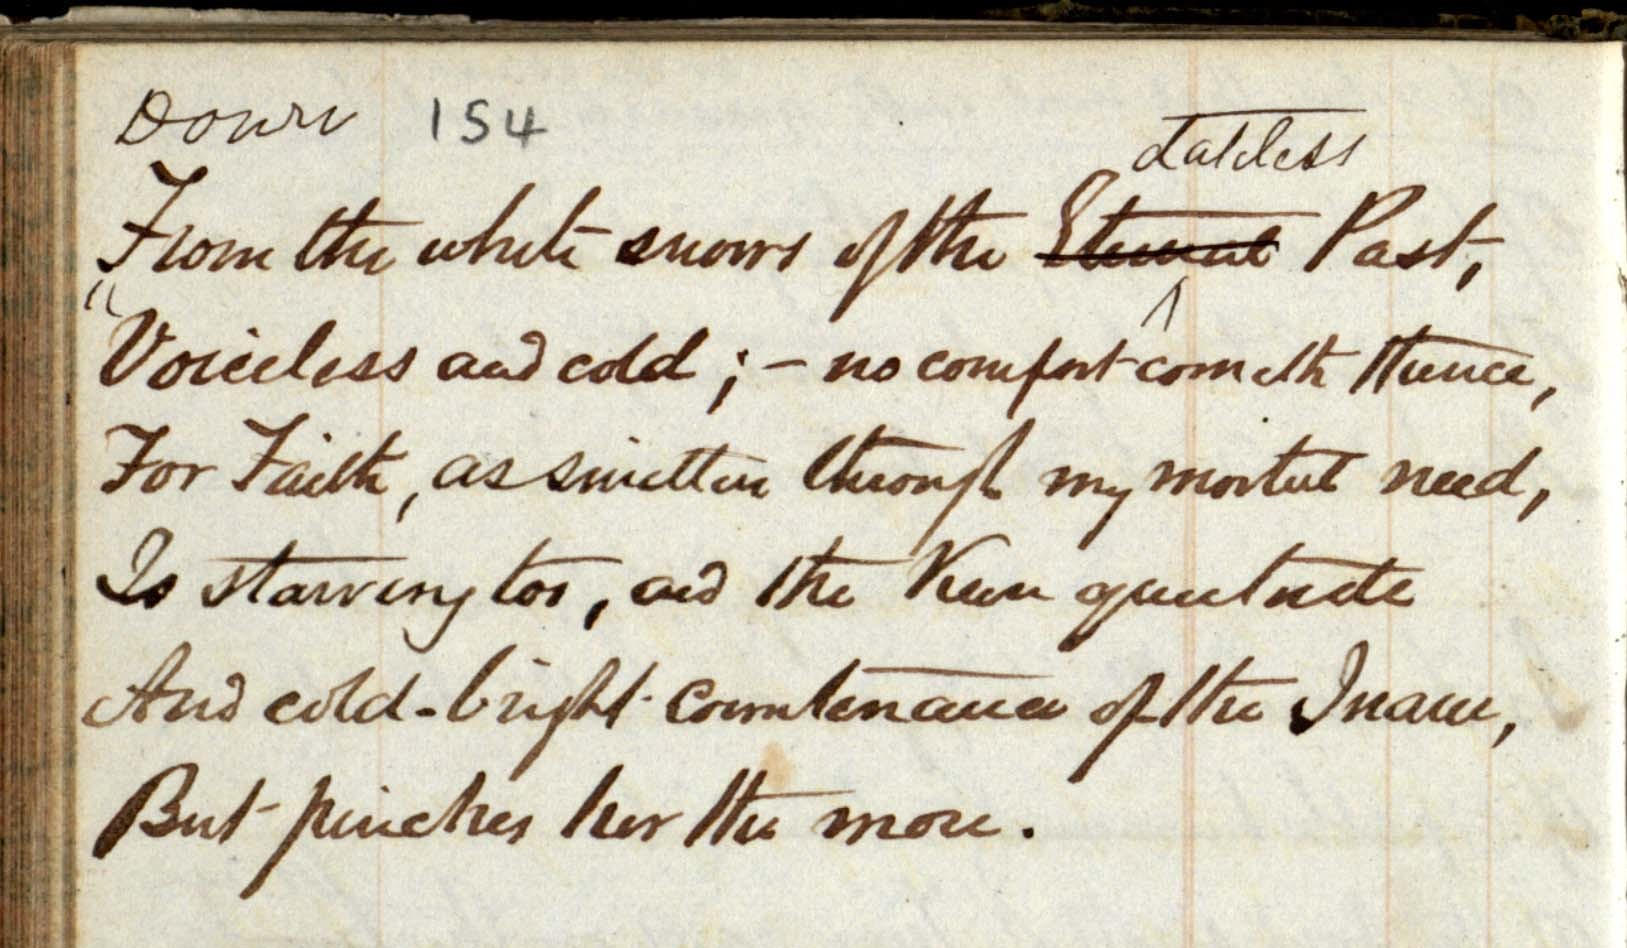 Down 154
dateless
From the white snows of the Eternal Past,
Voiceless and cold; – no comfort cometh thence,
For Faith, as smitten through my mortal need,
Is starving too, and the Keen quietude
And cold-bright countenance of the Inane,
But pinches her the more.